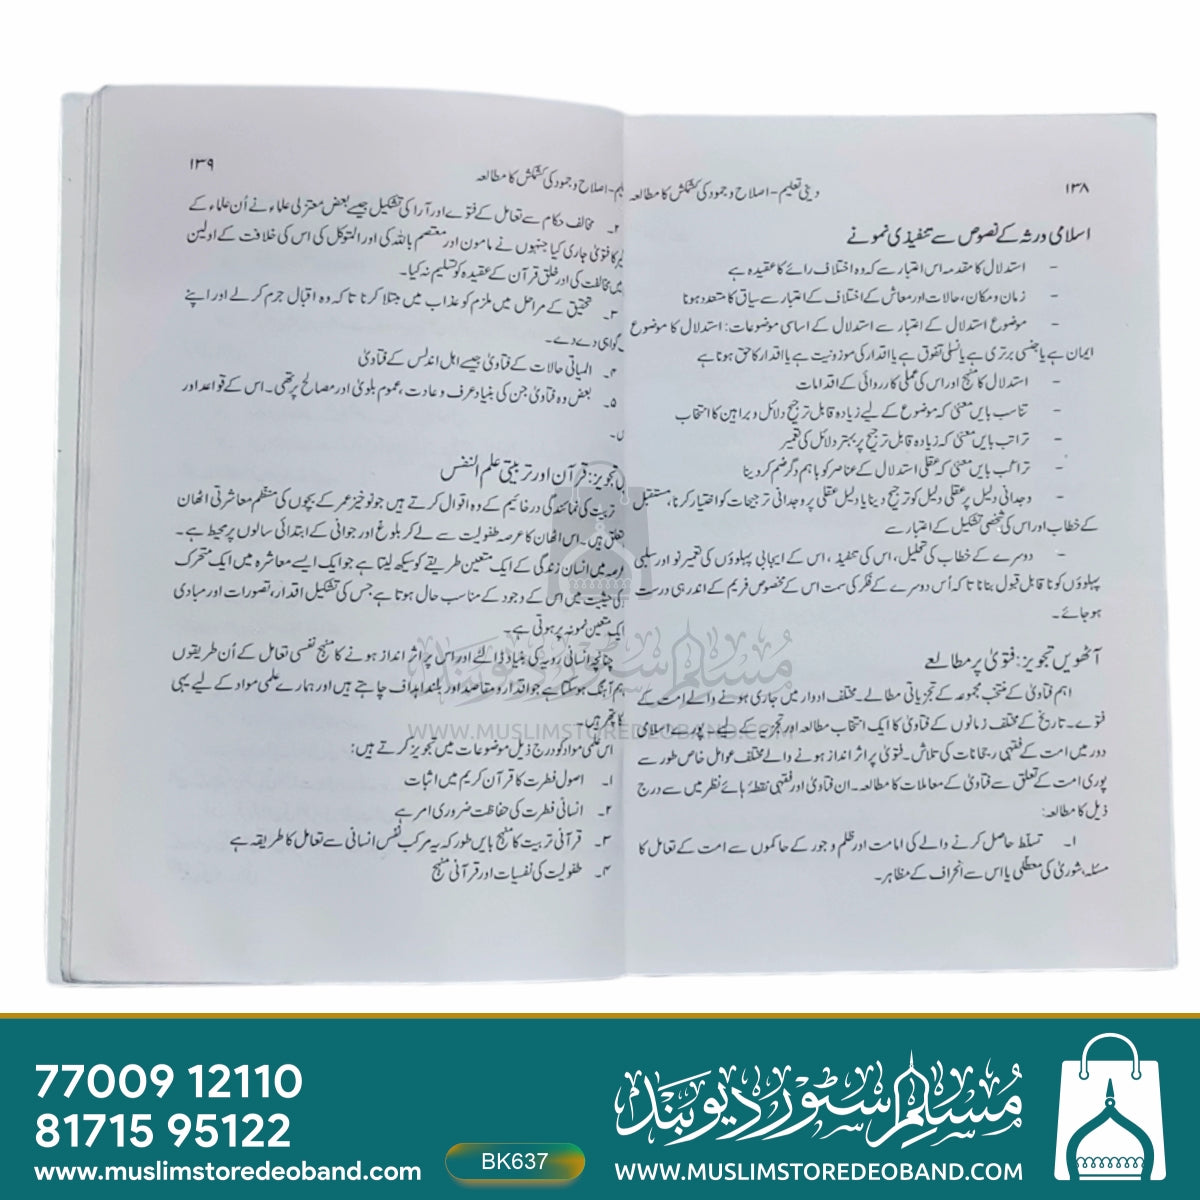 ۱۳۸
دینی تعلیم - اصلاح و جمود کی کشمکش کا مطالعہ
اسلامی ورثہ کے نصوص سے تنفیذی نمونے
- استدلال کا مقدمہ اس اعتبار سے کہ وہ اختلاف رائے کا عقیدہ ہے
- زمان و مکان، حالات اور معاش کے اختلاف کے اعتبار سے سیاق کا متعدد ہونا
- موضوع استدلال کے اعتبار سے استدلال کے اساسی موضوعات: استدلال کا موضوع
ایمان ہے یا جنسی برتری ہے یا نسلی تفوق ہے یا اقدار کی موزونیت ہے یا اقدار کا حق ہونا ہے
- استدلال کا منہج اور اس کی عملی کارروائی کے اقدامات
- تناسب بایں معنی کہ موضوع کے لیے زیادہ قابل ترجیح دلائل و براہین کا انتخاب
- تراتب بایں معنی کہ زیادہ قابل ترجیح پر بہتر دلائل کی تعمیر
- تراکب بایں معنی کہ عقلی استدلال کے عناصر کو باہم دگر ضم کر دینا
- وجدانی دلیل پر عقلی دلیل کو ترجیح دینا یا دلیل عقلی پر وجدانی ترجیحات کو اختیار کرنا، مستقبل
کے خطاب اور اس کی شخصی تشکیل کے اعتبار سے
- دوسرے کے خطاب کی تحلیل، اس کی تنفیذ، اس کے ایجابی پہلوؤں کی تعمیر نو اور سلبی
پہلوؤں کو نا قابل قبول بنانا تاکہ اُس دوسرے کے فکر کی سمت اس کے مخصوص فریم کے اندر ہی درست
ہو جائے۔
آٹھویں تجویز: فتویٰ پر مطالعے
اہم فتاویٰ کے منتخب مجموعہ کے تجزیاتی مطالعے۔ مختلف ادوار میں جاری ہونے والے امت کے
فتوے۔ تاریخ کے مختلف زمانوں کے فتاویٰ کا ایک انتخاب مطالعہ اور تجزیہ کے لیے۔ پورے اسلامی
دور میں امت کے فقہی رجحانات کی تلاش۔ فتویٰ پر اثر انداز ہونے والے مختلف عوامل خاص طور سے
پوری امت کے تعلق سے فتاویٰ کے معاملات کا مطالعہ۔ ان فتاویٰ اور فقہی نقطۂ ہائے نظر میں سے درج
ذیل کا مطالعہ:
۱۔ تسلط حاصل کرنے والے کی امامت اور ظلم و جور کے حاکموں سے امت کے تعامل کا
مسئلہ، شوریٰ کی معطلی یا اس سے انحراف کے مظاہر۔
۱۳۹
یم - اصلاح و جمود کی کشمکش کا مطالعہ
۲۔ مخالف حکام سے تعامل کے فتوے اور آرا کی تشکیل جیسے بعض معتزلی علماء نے اُن علماء کے
کا فتویٰ جاری کیا جنہوں نے مامون اور معتصم باللہ کی اور المتوکل کی اس کی خلافت کے اولین
میں مخالفت کی اور خلق قرآن کے عقیدہ کو تسلیم نہ کیا۔
۳۔ تحقیق کے مراحل میں ملزم کو عذاب میں مبتلا کرنا تاکہ وہ اقبال جرم کر لے اور اپنے
گواہی دے دے۔
۴۔ المیاتی حالات کے فتاویٰ جیسے اہل اندلس کے فتاویٰ
۵۔ بعض وہ فتاویٰ جن کی بنیاد عرف و عادت، عموم بلویٰ اور مصالح پر تھی۔ اس کے قواعد اور
تجویز: قرآن اور تربیتی علم النفس
تربیت کی نمائندگی در خاتیم کے وہ اقوال کرتے ہیں جو نوخیز عمر کے بچوں کی منظم معاشرتی اٹھان
تعلق ہیں۔ اس اٹھان کا عرصہ طفولیت سے لے کر بلوغ اور جوانی کے ابتدائی سالوں پر محیط ہے۔
میں انسان زندگی کے ایک متعین طریقے کو سیکھ لیتا ہے جو ایک ایسے معاشرہ میں ایک متحرک
کی حیثیت میں اس کے وجود کے مناسب حال ہوتا ہے جس کی تشکیل اقدار، تصورات اور مبادی
ایک متعین نمونہ پر ہوتی ہے۔
چنانچہ انسانی رویہ کی بنیاد ڈالنے اور اس پر اثر انداز ہونے کا منہج نفسی تعامل کے اُن طریقوں
ہم آہنگ ہو سکتا ہے جو اقدار و مقاصد اور بلند اہداف چاہتے ہیں اور ہمارے علمی مواد کے لیے یہی
ہیں۔
اس علمی مواد کو درج ذیل موضوعات میں تجویز کرتے ہیں:
۱۔ اصول فطرت کا قرآن کریم میں اثبات
۲۔ انسانی فطرت کی حفاظت ضروری امر ہے
۳۔ قرآنی تربیت کا منہج بایں طور کہ یہ مرکب نفس انسانی سے تعامل کا طریقہ ہے
۴۔ طفولیت کی نفسیات اور قرآنی منہج
مسلم سٹور دیوبند
WWW.MUSLIMSTOREDEOBAND.COM
77009 12110
81715 95122
www.muslimstoredeoband.com
BK637
مسلم سٹور دیوبند
WWW.MUSLIMSTOREDEOBAND.COM